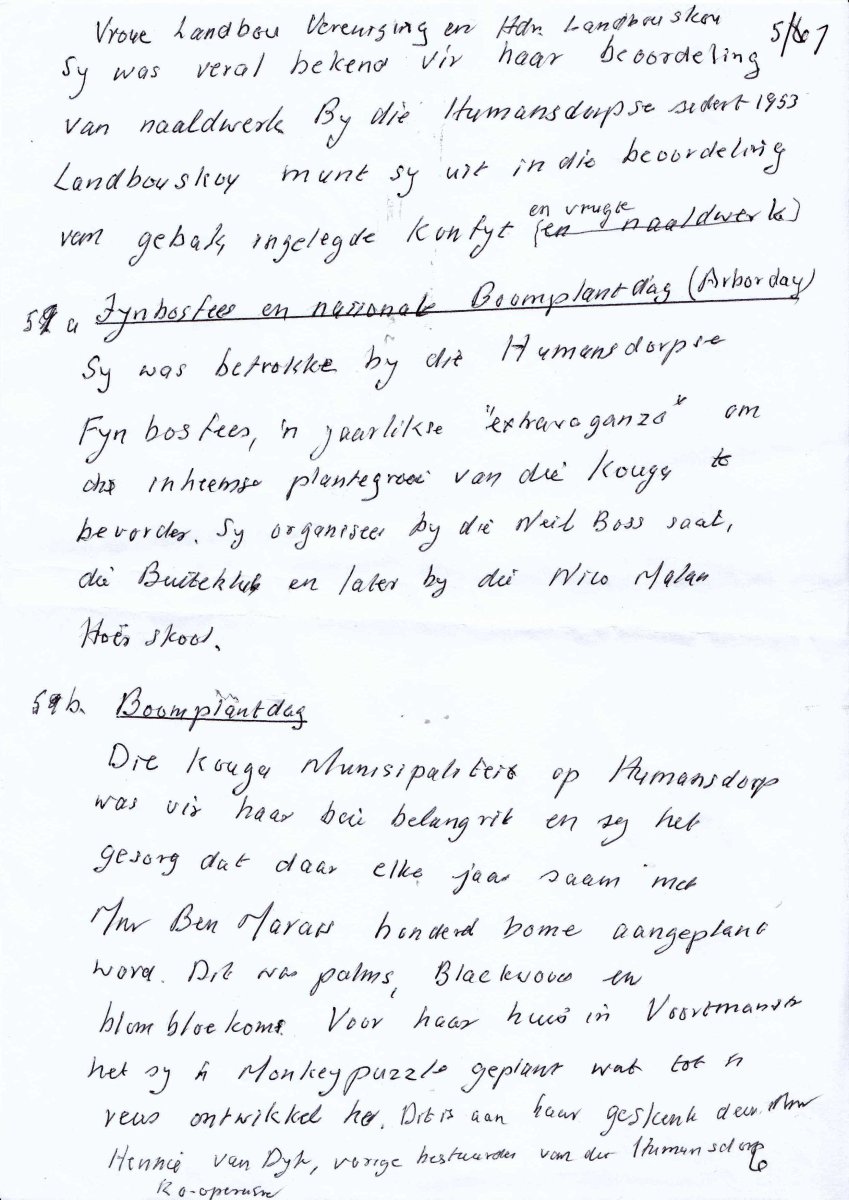 Vroue Landbou Vereniging en Hdn. Landbouskou
Sy was veral bekend vir haar beoordeling
van naaldwerk. By die Humansdorpse sedert 1953
Landbouskou munt sy uit in die beoordeling
van gebak, ingelegde konfyt en vrugte (en naaldwerk)
a Fynbosfees en nasionale Boomplantdag (Arborday)
Sy was betrokke by die Humansdorpse
Fynbosfees, 'n jaarlikse "extravaganza" om
die inheemse plantegroei van die Kouga te
bevorder. Sy organiseer by die Neil Boss saal,
die Buiteklub en later by die Nico Malan
Hoër skool.
b. Boomplantdag
Die Kouga Munisipaliteit op Humansdorp
was vir haar baie belangrik en sy het
gesorg dat daar elke jaar saam met
Mnr Ben Marais honderd bome aangeplant
word. Dit was palms, Blackwoods en
blombloekoms. Voor haar huis in Voortmanstr
het sy 'n Monkeypuzzle geplant wat tot 'n
reus ontwikkel het. Dit is aan haar geskenk deur Mnr
Hennie van Dyk, vorige bestuurder van die Humansdorp
Ko-operasie